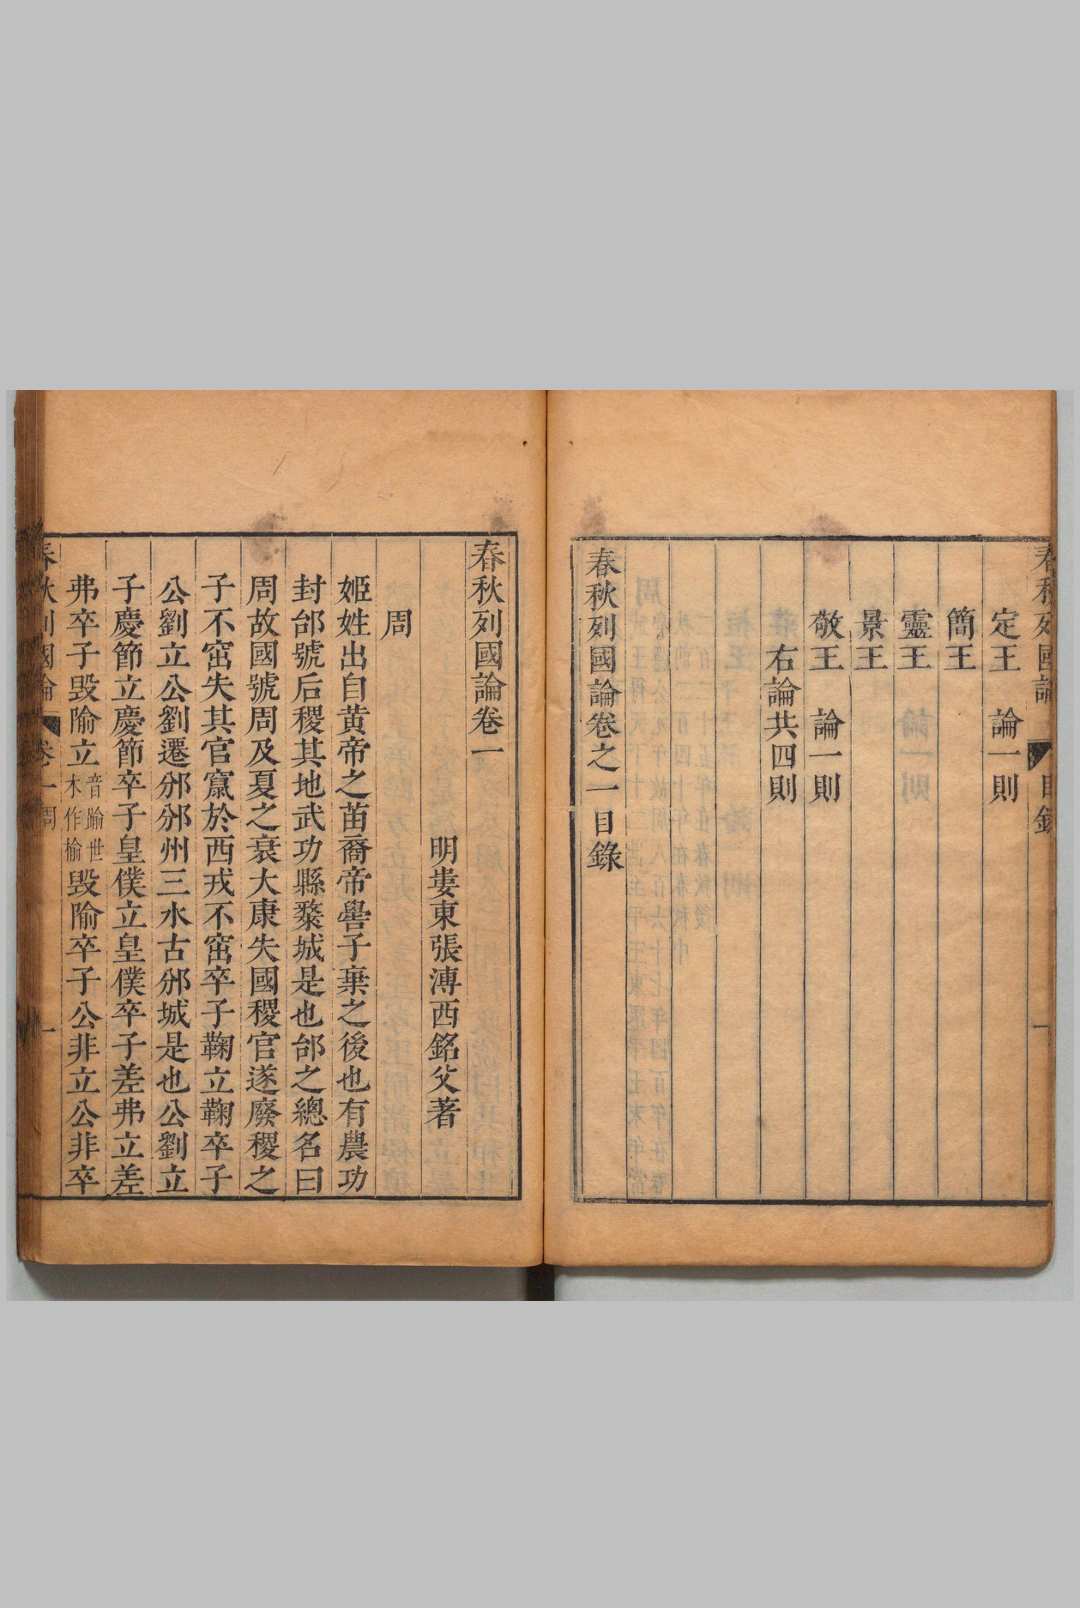 春秋列國論 目錄 一
定王 論一則
簡王
靈王
景王
敬王 論一則
右論共四則
春秋列國論卷之一目錄
春秋列國論卷一
明婁東張溥西銘父著
周
姬姓出自黃帝之苗裔帝嚳子棄之後也有農功
封邰號后稷其地武功縣斄城是也邰之總名曰
周故國號周及夏之衰大康失國稷官遂廢稷之
子不窋失其官竄於西戎不窋卒子鞠立鞠卒子
公劉立公劉遷邠邠州三水古邠城是也公劉立
子慶節立慶節卒子皇僕立皇僕卒子差弗立差
弗卒子毀隃立音踰世木作榆毀隃卒子公非立公非卒
春秋列國論 卷一周 一